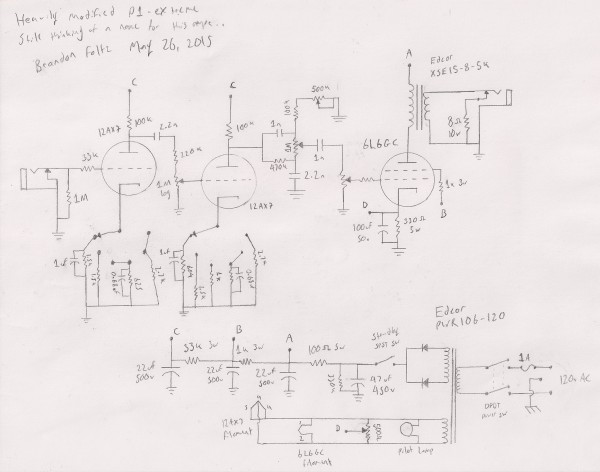 Heavily modified P1-extreme
Still thinking of a name for this maybe...
Brandon Foltz May 26, 2015
Edcor
XSE15-8-5k
A
C
C
100k
100k
12AX7
2.2n
33k
1M
220k
1M
log
12AX7
1n
470k
100k
500k
1n
2.2n
6L6GC
8Ω
10w
1k 3w
B
D
100uF
50v
330Ω
5w
1uF
0.68uF
2.7k
1uF
2.7k
0.68uF
Edcor
PWR106-120
C
33k 3w
B
1k 3w
A
100Ω 5w
Standby
SPST SW
22uF
500v
22uF
500v
22uF
500v
47uF
450v
1A
120v AC
DPST
12AX7
filament
6L6GC
filament
D
Pilot Lamp